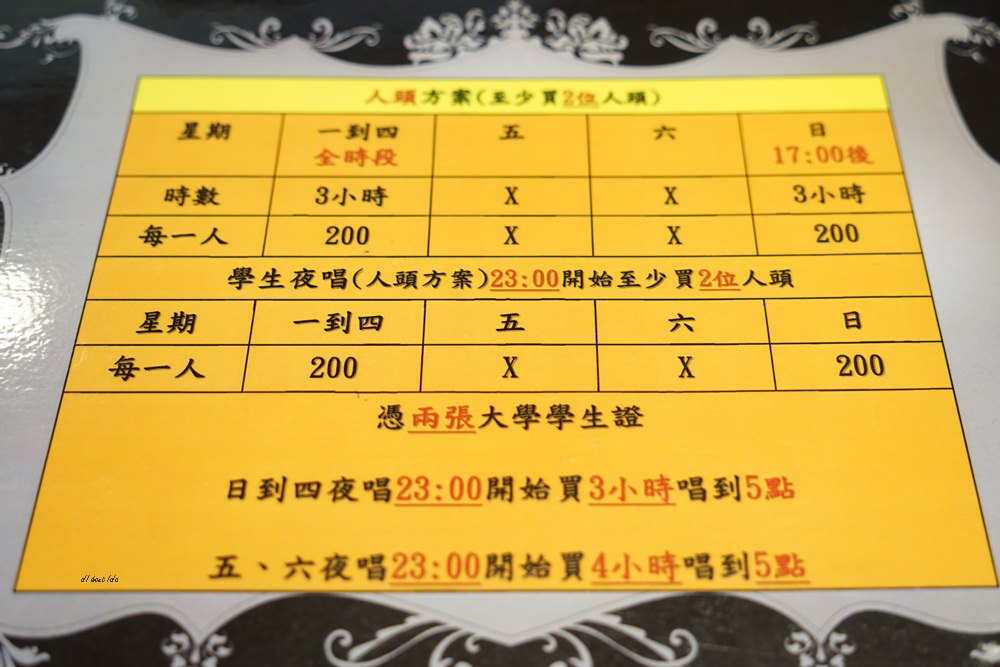 人頭方案(至少買2位人頭)
星期 一到四 五 六 日
全時段 17:00後
時數 3小時 X X 3小時
每一人 200 X X 200
學生夜唱(人頭方案)23:00開始至少買2位人頭
星期 一到四 五 六 日
每一人 200 X X 200
憑兩張大學學生證
日到四夜唱23:00開始買3小時唱到5點
五、六夜唱23:00開始買4小時唱到5點